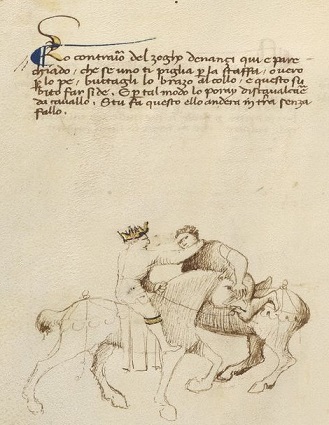 Lo contrario del zogho denançi qui è pare
chiado, che se uno ti piglia per la staffa, overo
per lo pe, buttagli lo brazo al collo, e questo su
bito far si de. E per tal modo lo poray discavalcare
da cavallo. E tu fa questo ello andera in terra senza
fallo.